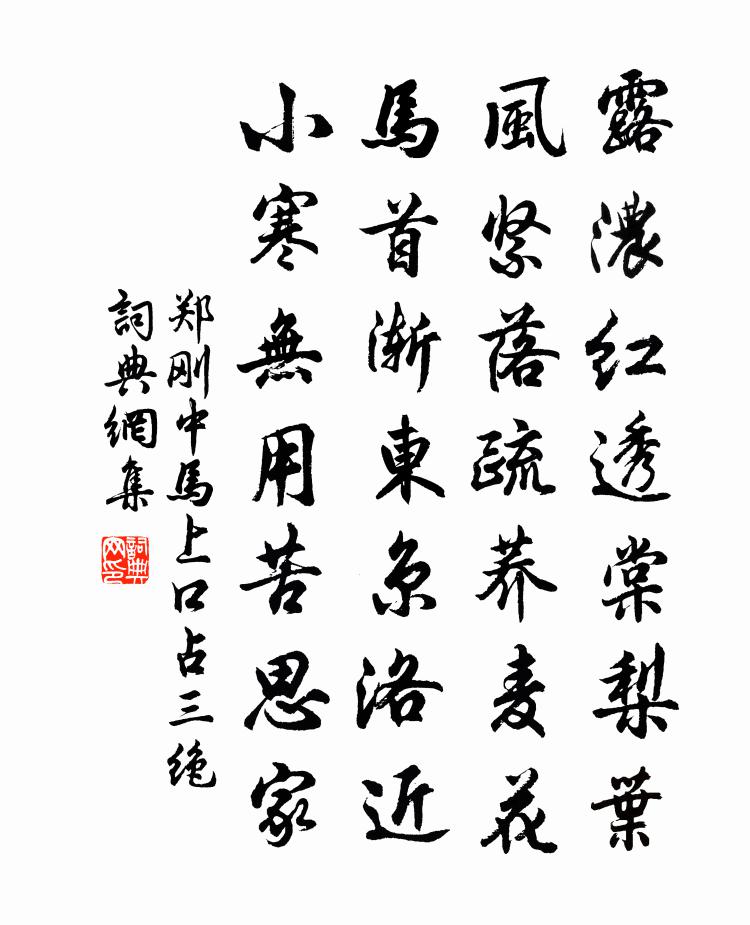 露濃红透棠梨葉
風紧落疏荞麦花
馬首渐東京洛近
小寒無用苦思家
郑刚中馬上口占三绝
詞典網集
詞典网印